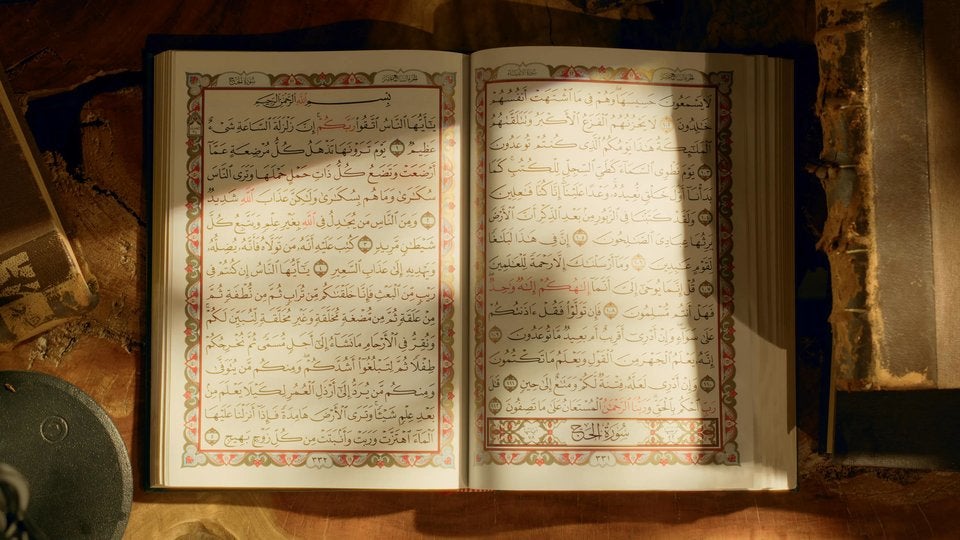 سُورَةُ الأَنْبِيَاءِ
لَا يَسْمَعُونَ حَسِيسَهَا وَهُمْ فِي مَا ٱشْتَهَتْ أَنفُسُهُمْ
خَٰلِدُونَ ١٠٢ لَا يَحْزُنُهُمُ ٱلْفَزَعُ ٱلْأَكْبَرُ وَتَتَلَقَّىٰهُمُ
ٱلْمَلَٰٓئِكَةُ هَٰذَا يَوْمُكُمُ ٱلَّذِي كُنتُمْ تُوعَدُونَ
١٠٣ يَوْمَ نَطْوِي ٱلسَّمَآءَ كَطَيِّ ٱلسِّجِلِّ لِلْكُتُبِ كَمَا
بَدَأْنَآ أَوَّلَ خَلْقٍ نُّعِيدُهُۥ وَعْدًا عَلَيْنَآ إِنَّا كُنَّا فَٰعِلِينَ
١٠٤ وَلَقَدْ كَتَبْنَا فِي ٱلزَّبُورِ مِنۢ بَعْدِ ٱلذِّكْرِ أَنَّ ٱلْأَرْضَ
يَرِثُهَا عِبَادِيَ ٱلصَّٰلِحُونَ ١٠٥ إِنَّ فِي هَٰذَا لَبَلَٰغًا
لِّقَوْمٍ عَٰبِدِينَ ١٠٦ وَمَآ أَرْسَلْنَٰكَ إِلَّا رَحْمَةً لِّلْعَٰلَمِينَ
١٠٧ قُلْ إِنَّمَا يُوحَىٰٓ إِلَيَّ أَنَّمَآ إِلَٰهُكُمْ إِلَٰهٌ وَٰحِدٌ
فَهَلْ أَنتُم مُّسْلِمُونَ ١٠٨ فَإِن تَوَلَّوْا۟ فَقُلْ ءَاذَنتُكُمْ
عَلَىٰ سَوَآءٍ وَإِنْ أَدْرِيٓ أَقَرِيبٌ أَم بَعِيدٌ مَّا تُوعَدُونَ ١٠٩
إِنَّهُۥ يَعْلَمُ ٱلْجَهْرَ مِنَ ٱلْقَوْلِ وَيَعْلَمُ مَا تَكْتُمُونَ
١١٠ وَإِنْ أَدْرِي لَعَلَّهُۥ فِتْنَةٌ لَّكُمْ وَمَتَٰعٌ إِلَىٰ حِينٍ ١١١ قَٰلَ
رَبِّ ٱحْكُم بِٱلْحَقِّ وَرَبُّنَا ٱلرَّحْمَٰنُ ٱلْمُسْتَعَانُ عَلَىٰ مَا تَصِفُونَ ١١٢
سُورَةُ الْحَجِّ
٣٣١
سُورَةُ الْحَجِّ
بِسْمِ ٱللَّهِ ٱلرَّحْمَٰنِ ٱلرَّحِيمِ
يَٰٓأَيُّهَا ٱلنَّاسُ ٱتَّقُوا۟ رَبَّكُمْ إِنَّ زَلْزَلَةَ ٱلسَّاعَةِ شَيْءٌ
عَظِيمٌ ١ يَوْمَ تَرَوْنَهَا تَذْهَلُ كُلُّ مُرْضِعَةٍ عَمَّآ
أَرْضَعَتْ وَتَضَعُ كُلُّ ذَاتِ حَمْلٍ حَمْلَهَا وَتَرَى ٱلنَّاسَ
سُكَٰرَىٰ وَمَا هُم بِسُكَٰرَىٰ وَلَٰكِنَّ عَذَابَ ٱللَّهِ شَدِيدٌ
٢ وَمِنَ ٱلنَّاسِ مَن يُجَٰدِلُ فِي ٱللَّهِ بِغَيْرِ عِلْمٍ وَيَتَّبِعُ كُلَّ
شَيْطَٰنٍ مَّرِيدٍ ٣ كُتِبَ عَلَيْهِ أَنَّهُۥ مَن تَوَلَّاهُ فَأَنَّهُۥ يُضِلُّهُۥ
وَيَهْدِيهِ إِلَىٰ عَذَابِ ٱلسَّعِيرِ ٤ يَٰٓأَيُّهَا ٱلنَّاسُ إِن كُنتُمْ فِي
رَيْبٍ مِّنَ ٱلْبَعْثِ فَإِنَّا خَلَقْنَٰكُم مِّن تُرَابٍ ثُمَّ مِن نُّطْفَةٍ ثُمَّ
مِنْ عَلَقَةٍ ثُمَّ مِن مُّضْغَةٍ مُّخَلَّقَةٍ وَغَيْرِ مُخَلَّقَةٍ لِّنُبَيِّنَ لَكُمْ
وَنُقِرُّ فِي ٱلْأَرْحَامِ مَا نَشَآءُ إِلَىٰٓ أَجَلٍ مُّسَمًّى ثُمَّ نُخْرِجُكُمْ
طِفْلًا ثُمَّ لِتَبْلُغُوٓا۟ أَشُدَّكُمْ وَمِنكُم مَّن يُتَوَفَّىٰ
وَمِنكُم مَّن يُرَدُّ إِلَىٰٓ أَرْذَلِ ٱلْعُمُرِ لِكَيْلَا يَعْلَمَ مِنۢ
بَعْدِ عِلْمٍ شَيْـًٔا وَتَرَى ٱلْأَرْضَ هَامِدَةً فَإِذَآ أَنزَلْنَا عَلَيْهَا
ٱلْمَآءَ ٱهْتَزَّتْ وَرَبَتْ وَأَنۢبَتَتْ مِن كُلِّ زَوْجٍۭ بَهِيجٍ ٥
٣٣٢